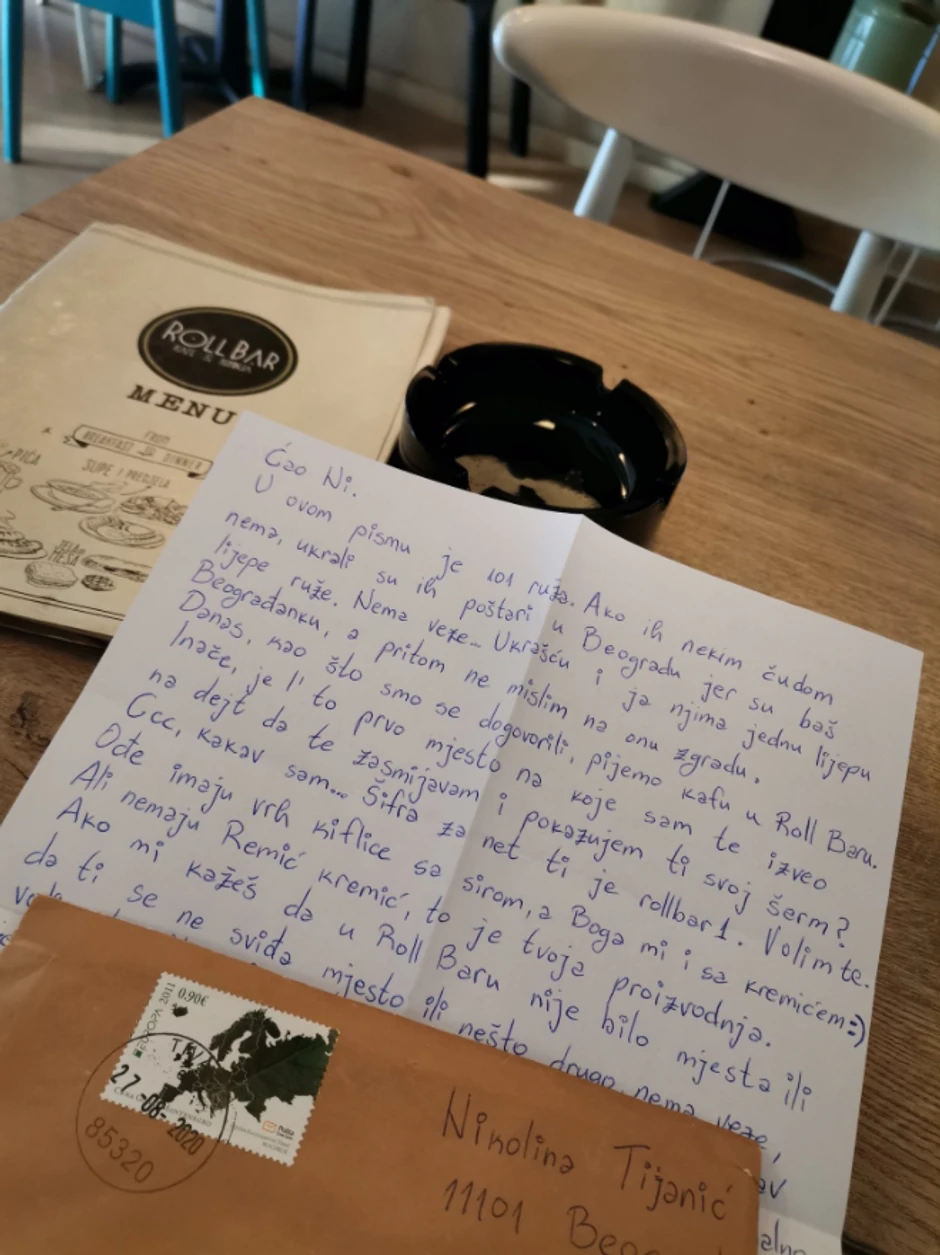 ROLL BAR
MENU
FROM
BREAKFAST TO DINNER
PIĆA
SUPE I PREDJELA
Ćao Ni.
U ovom pismu je 101 ruža. Ako ih nekim čudom
nema, ukrali su ih poštari u Beogradu jer su baš
lijepe ruže. Nema veze... Ukrašću i ja njima jednu lijepu
Beograđanku, a pritom ne mislim na onu zgradu.
Danas, kao što smo se dogovorili, pijemo kafu u Roll Baru.
Inače, je l' to prvo mjesto na koje sam te izveo
na dejt da te zasmijavam i pokazujem ti svoj šerm?
Ccc, kakav sam... Šifra za net ti je rollbar1. Volim te.
Ođe imaju vrh kiflice sa sirom, a Boga mi i sa kremićem:)
Ali nemaju Remić kremić, to je tvoja proizvodnja.
Ako mi kažeš da u Roll Baru nije bilo mjesta ili
da ti se ne sviđa mjesto ili nešto drugo nema veze,
EUROPA 2011
0.90€
27-08-2020
85320
Nikolina Tijanić
11101 Beog